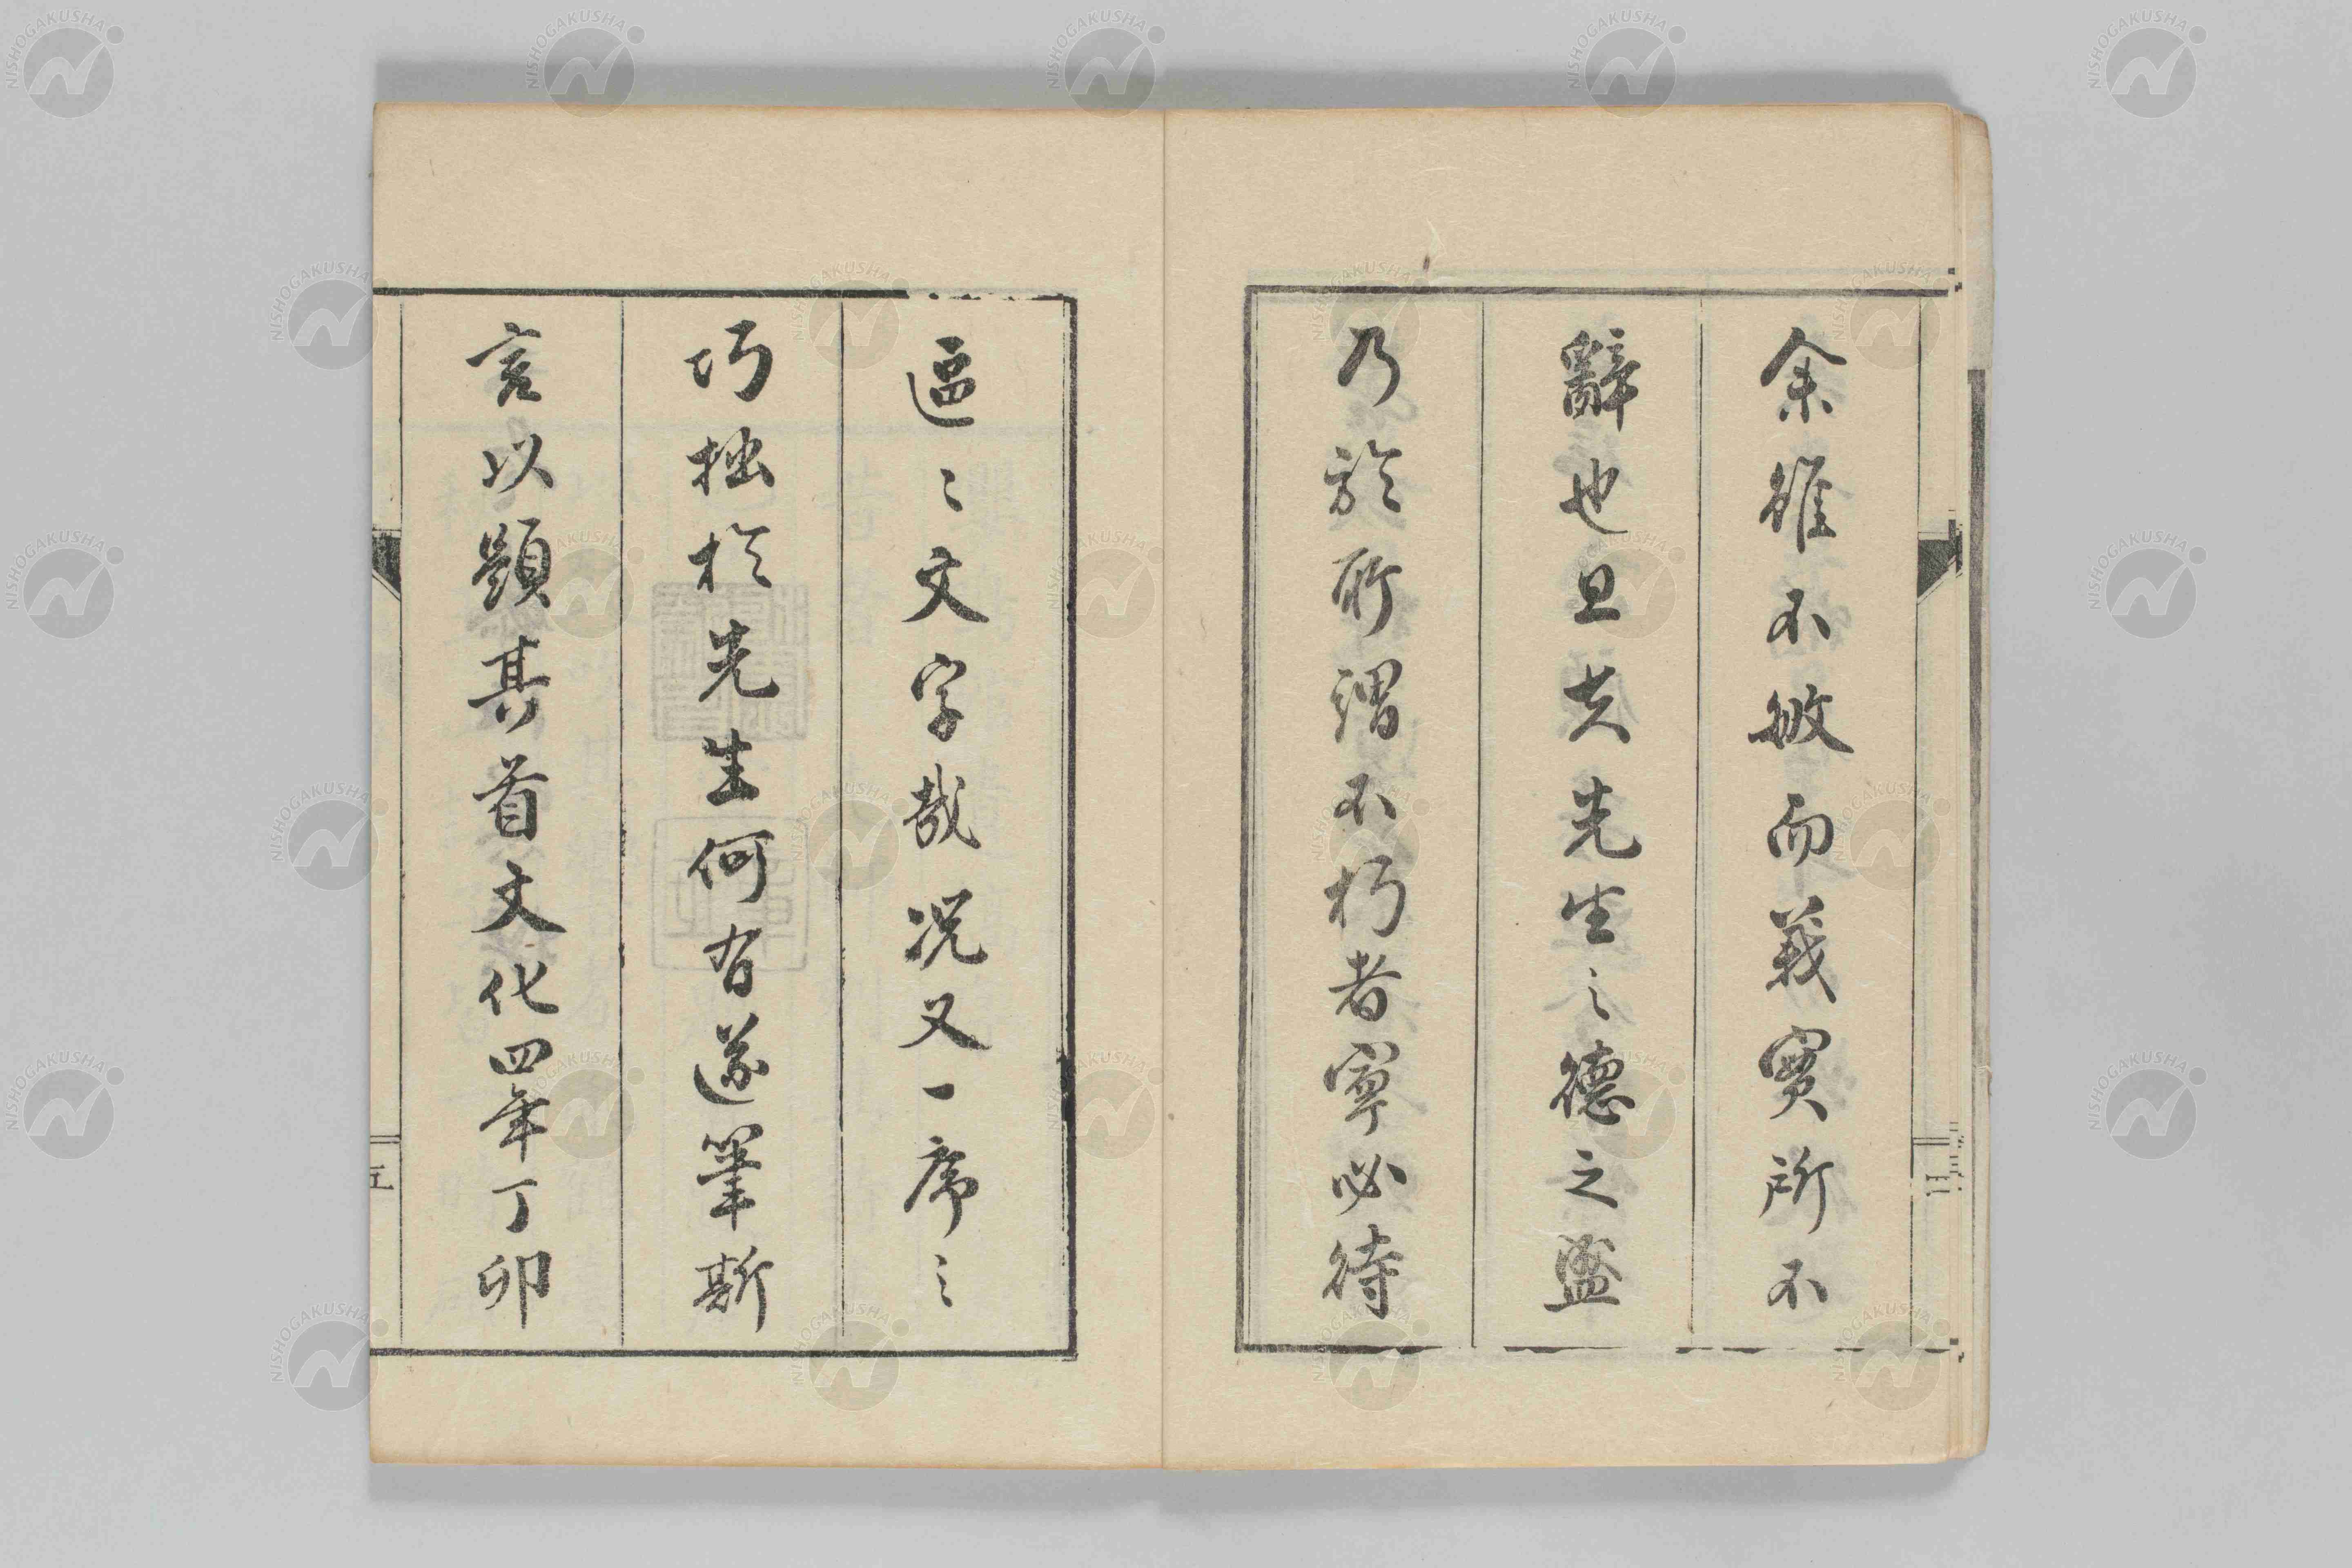 余雖不敏而義實所不
辭也且夫先生之德之盛
乃於所謂不朽者寧必待
區〻文字哉況又一序之
巧拙於先生何有遂筆斯
言以題其首文化四年丁卯
五
NISHOGAKUSHA